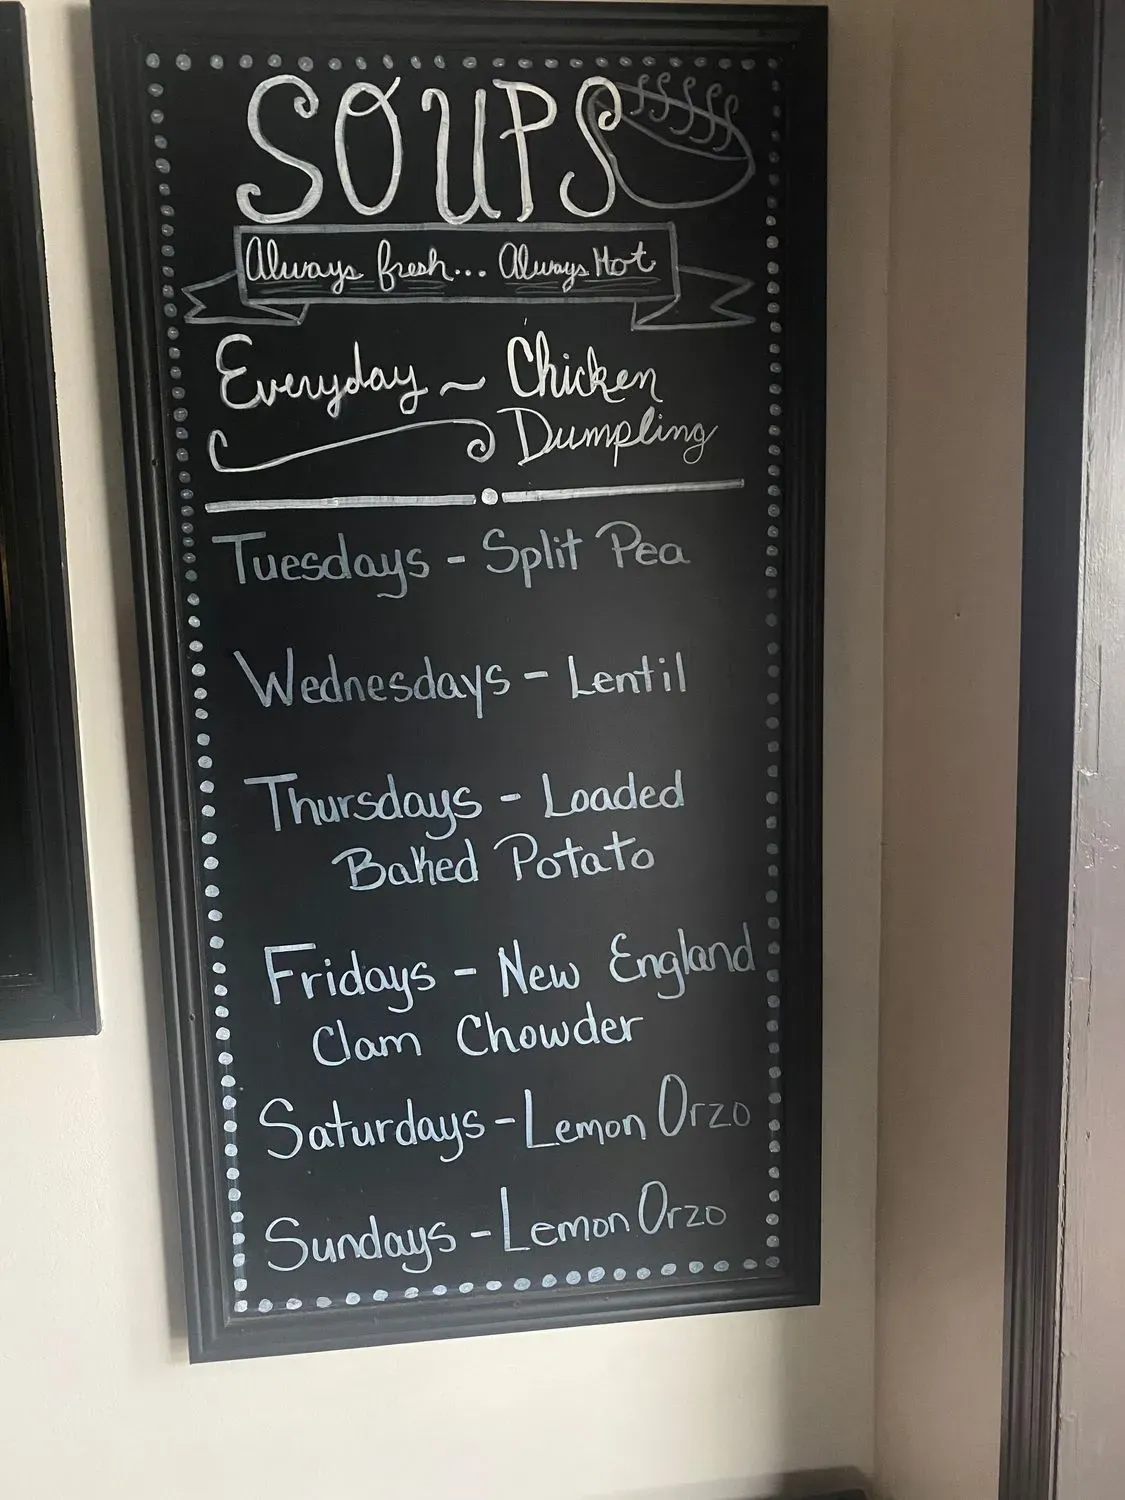 SOUPS
Always fresh... Always Hot
Everyday ~ Chicken
Dumpling
Tuesdays - Split Pea
Wednesdays - Lentil
Thursdays - Loaded
Baked Potato
Fridays - New England
Clam Chowder
Saturdays - Lemon Orzo
Sundays - Lemon Orzo